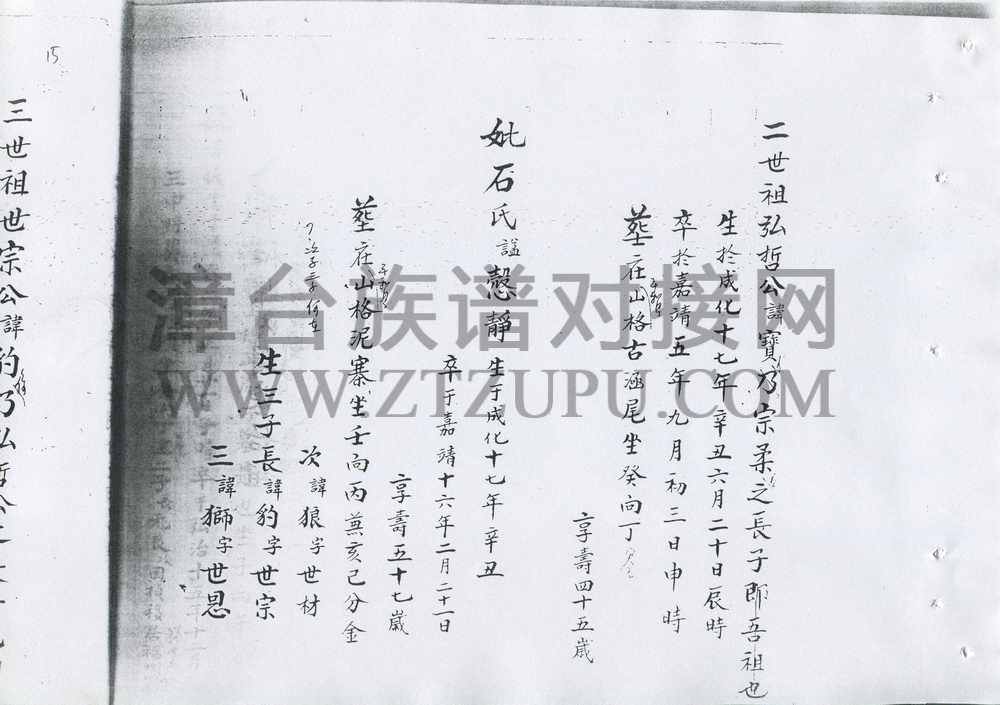 二世祖弘哲公諱寶乃宗柔之長子即吾祖也
生於成化十七年辛丑六月二十日辰時
卒於嘉靖五年九月初三日申時
塟在山格古涵尾坐癸向丁
享壽四十五歲
妣石氏諡慤靜生于成化十七年辛丑
卒于嘉靖十六年二月二十一日
享壽五十七歲
塟在山格泥寨坐壬向丙兼亥巳分金
次諱狼字世材
生三子長諱豹字世宗
三諱獅字世恩
15
三世祖世宗公諱豹乃弘哲公之
漳台族谱对接网
WWW.ZTZUPU.COM